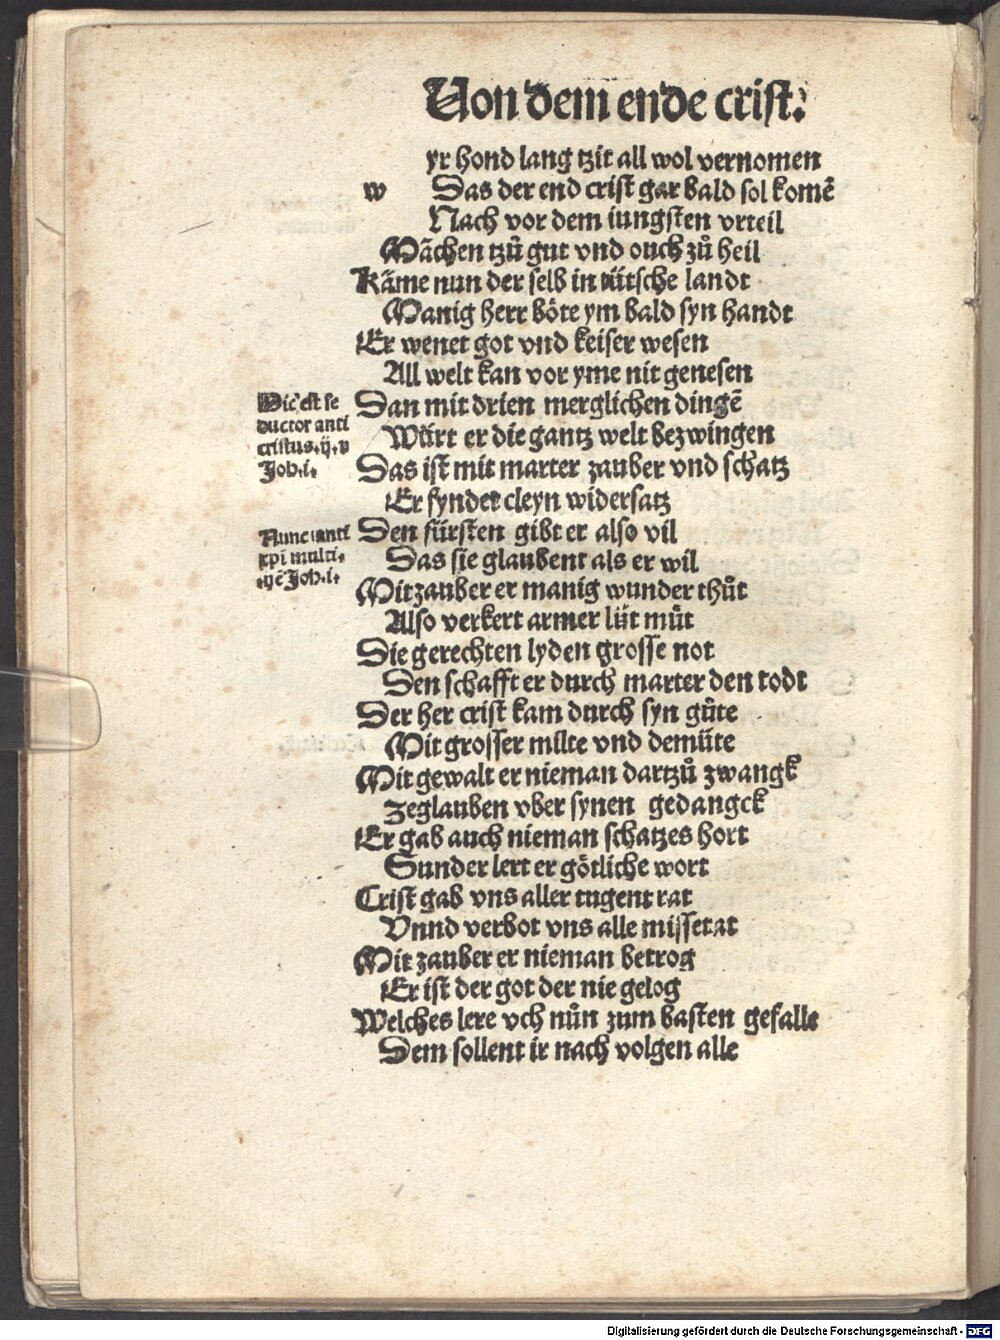 Von dem ende crist.
wyr hond lang tzit all wol vernomen
Das der end crist gar bald sol komē
Nach vor dem iungsten vrteil
Māchen tzů gut vnd ouch zů heil
Käme nun der selb in tütsche landt
Manig herr böte ym bald syn handt
Er wenet got vnd keiser wesen
All welt kan vor yme nit genesen
Dan mit drien merglichen dingē
Würt er die gantz welt bezwingen
Das ist mit marter zauber vnd schatz
Er fyndet cleyn widersatz
Den fürsten gibt er also vil
Das sie glaubent als er wil
Mit zauber er manig wunder thůt
Also verkert armer lüt můt
Die gerechten lyden grosse not
Den schafft er durch marter den todt
Der her crist kam durch syn gůte
Mit grosser milte vnd demüte
Mit gewalt er nieman dartzů zwangk
Zeglauben vber synen gedangck
Er gab auch nieman schatzes hort
Sunder lert er götliche wort
Crist gab vns aller tugent rat
Vnnd verbot vns alle missetat
Mit zauber er nieman betrog
Er ist der got der nie gelog
Welches lere vch nůn zum basten gefalle
Dem sollent ir nach volgen alle
Hic est se
ductor anti
cristus. ij. v
Joh. i.
Nunc anti
xpi multi.
Joh. i.
Digitalisierung gefördert durch die Deutsche Forschungsgemeinschaft - DFG